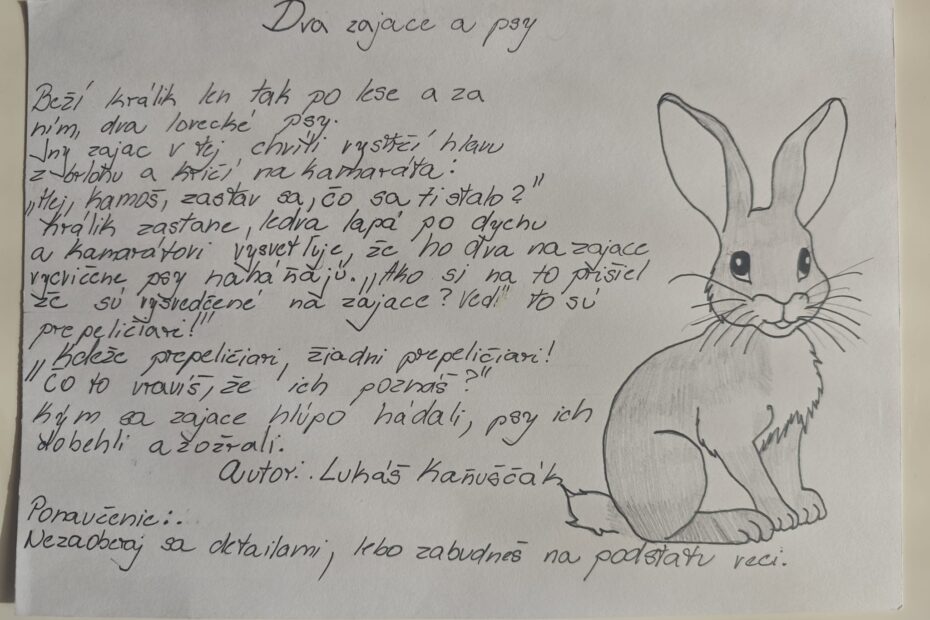 Dva zajace a psy
Beží králik len tak po lese a za
ním, dva lovecké psy.
Iný zajac v tej chvíli vystrčí hlavu
z brlohu a kričí na kamaráta:
„Hej, kamoš, zastav sa, čo sa ti stalo?"
Králik zastane, ledva lapá po dychu
a kamarátovi vysvetľuje, že ho dva na zajace
vycvičené psy naháňajú. „Ako si na to prišiel
že sú vysvedčené na zajace? Veď to sú
prepeličiari!"
„Kdeže prepeličiari, žiadni prepeličiari!
Čo to vravíš, že ich poznáš?"
Kým sa zajace hlúpo hádali, psy ich
dobehli a zožrali.
Autor: Lukáš Kaňuščák
Ponaučenie:.
Nezaoberaj sa detailami, lebo zabudneš na podstatu veci.